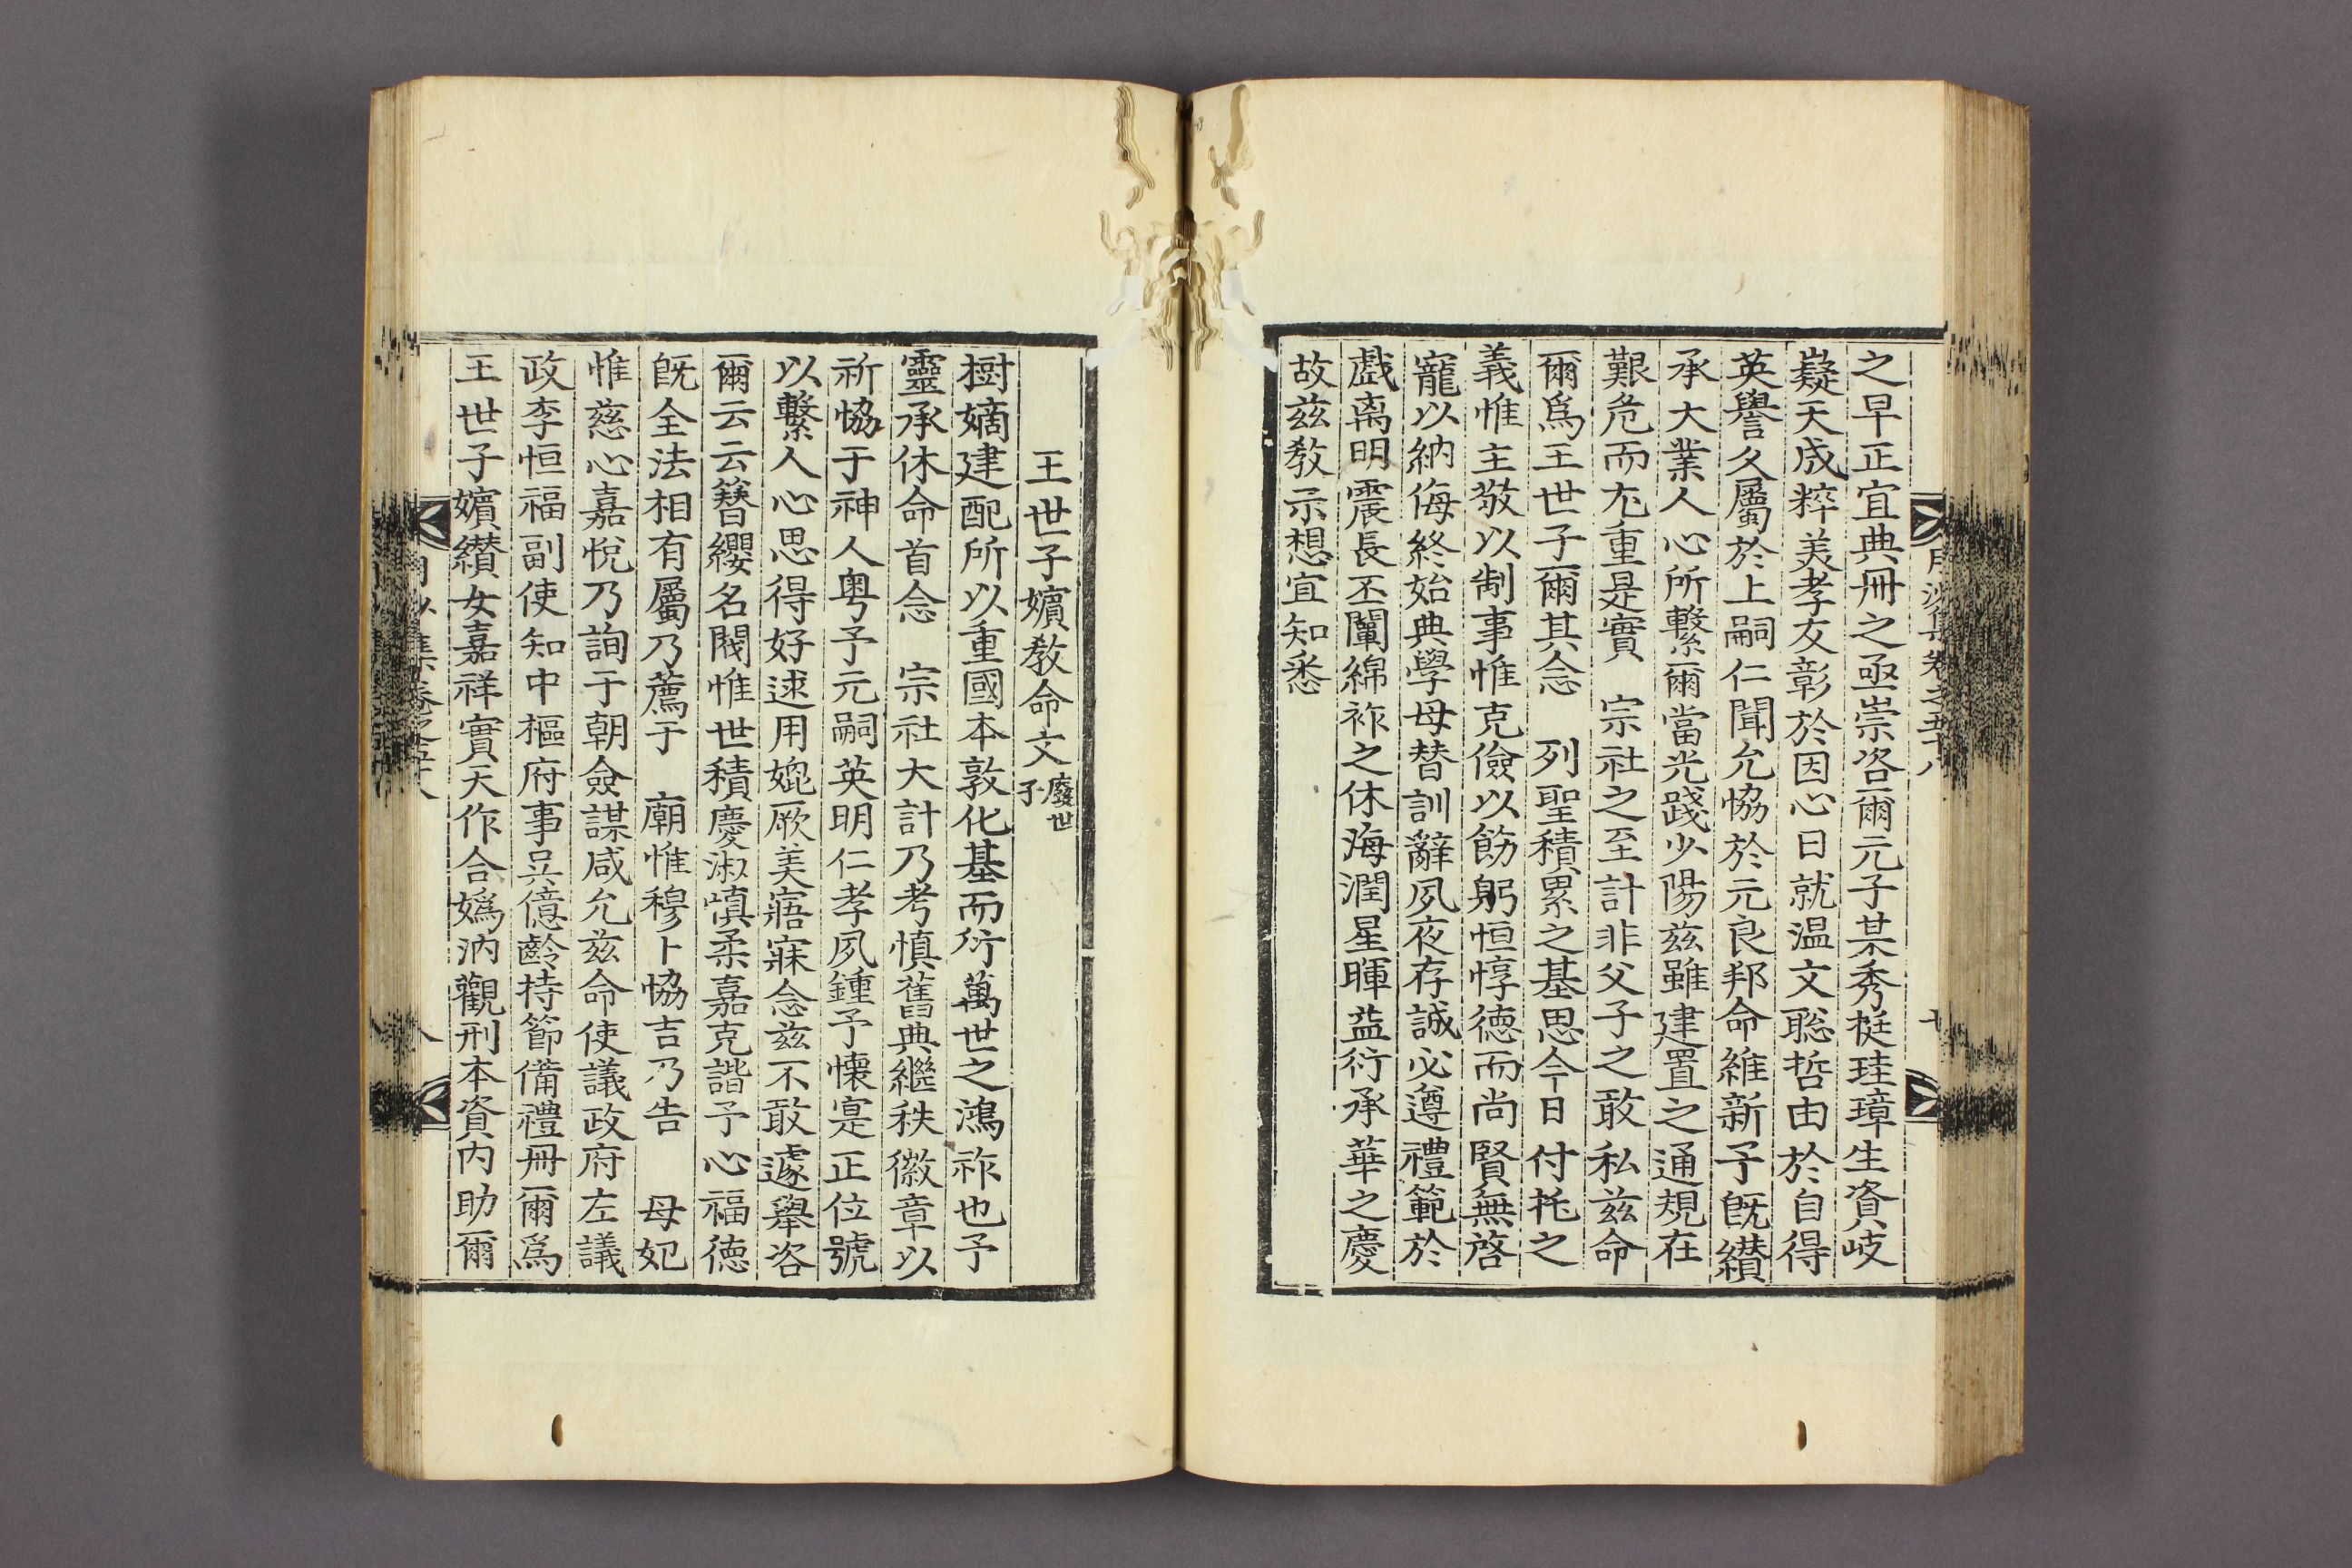 月沙集卷之五十八
七
之早正宜典冊之亟崇咨爾元子某秀挺珪璋生資岐
嶷天成粹美孝友彰於因心日就温文聡哲由於自得
英譽久屬於上嗣仁聞允恊於元良邦命維新予旣纉
承大業人心所繫爾當光踐少陽兹雖建置之通規在
艱危而尤重是實　宗社之至計非父子之敢私兹命
爾爲王世子爾其念　列聖積累之基思今日付托之
義惟主敬以制事惟克儉以飭躬恒惇德而尚賢無啓
寵以納侮終始典學毋替訓辭夙夜存誠必遵禮範於
戯离明震長丕闡綿祚之休海潤星暉益衍承華之慶
故兹教示想宜知悉
王世子嬪教命文廢世子
樹嫡建配所以重國本敦化基而衍萬世之鴻祚也予
靈承休命首念　宗社大計乃考慎舊典繼秩徽章以
祈恊于神人粤予元嗣英明仁孝夙鍾予懷寔正位號
以繫人心思得好逑用媲厥美寤寐念兹不敢遽舉咨
爾云云簪纓名閥惟世積慶淑愼柔嘉克諧予心福德
旣全法相有屬乃薦于　廟惟穆卜恊吉乃告　母妃
惟慈心嘉悅乃詢于朝僉謀咸允兹命使議政府左議
政李恒福副使知中樞府事吳億齡持節備禮冊爾爲
王世子嬪纉女嘉祥實天作合嬀汭觀刑本資内助爾
月沙集卷之五十八
八